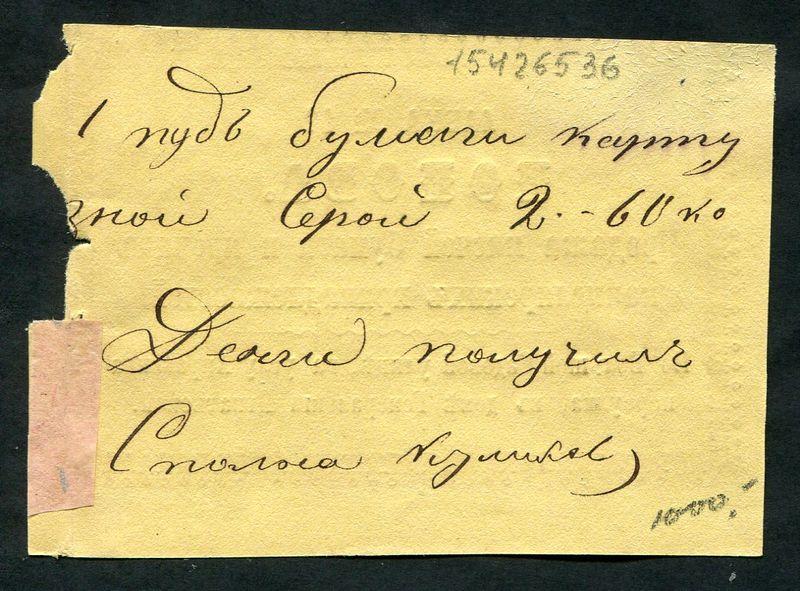 15426536
1 пудъ бумаги карту
зной Серой 2.-60 ко
Деньги получилъ
Куликов
1000,-